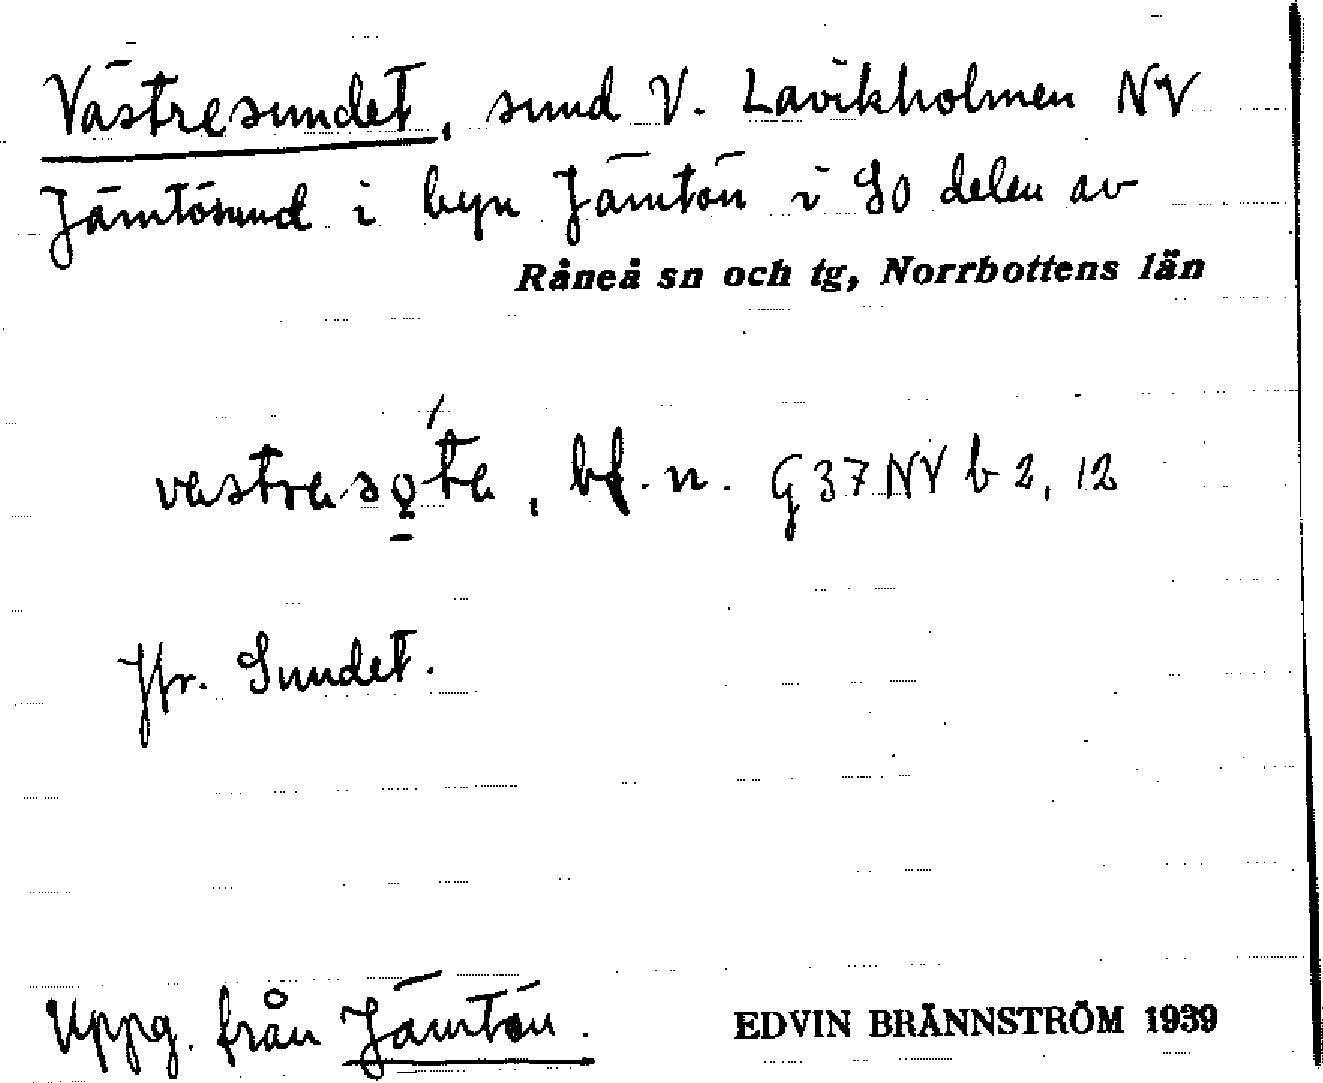 Västresundet, sund V. Lavikholmen NV
Jämtösund i byn Jämtön i SO delen av
Råneå sn och tg, Norrbottens län
bf. n. G 37 NV b 2, 12
Jfr. Sundet.
Uppg. från Jämtön.
EDVIN BRÄNNSTRÖM 1939